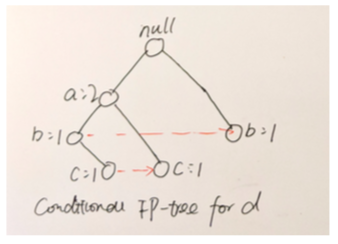 null
a:2
b=1 b=1
c=1 c=1
Conditional FP-tree for d